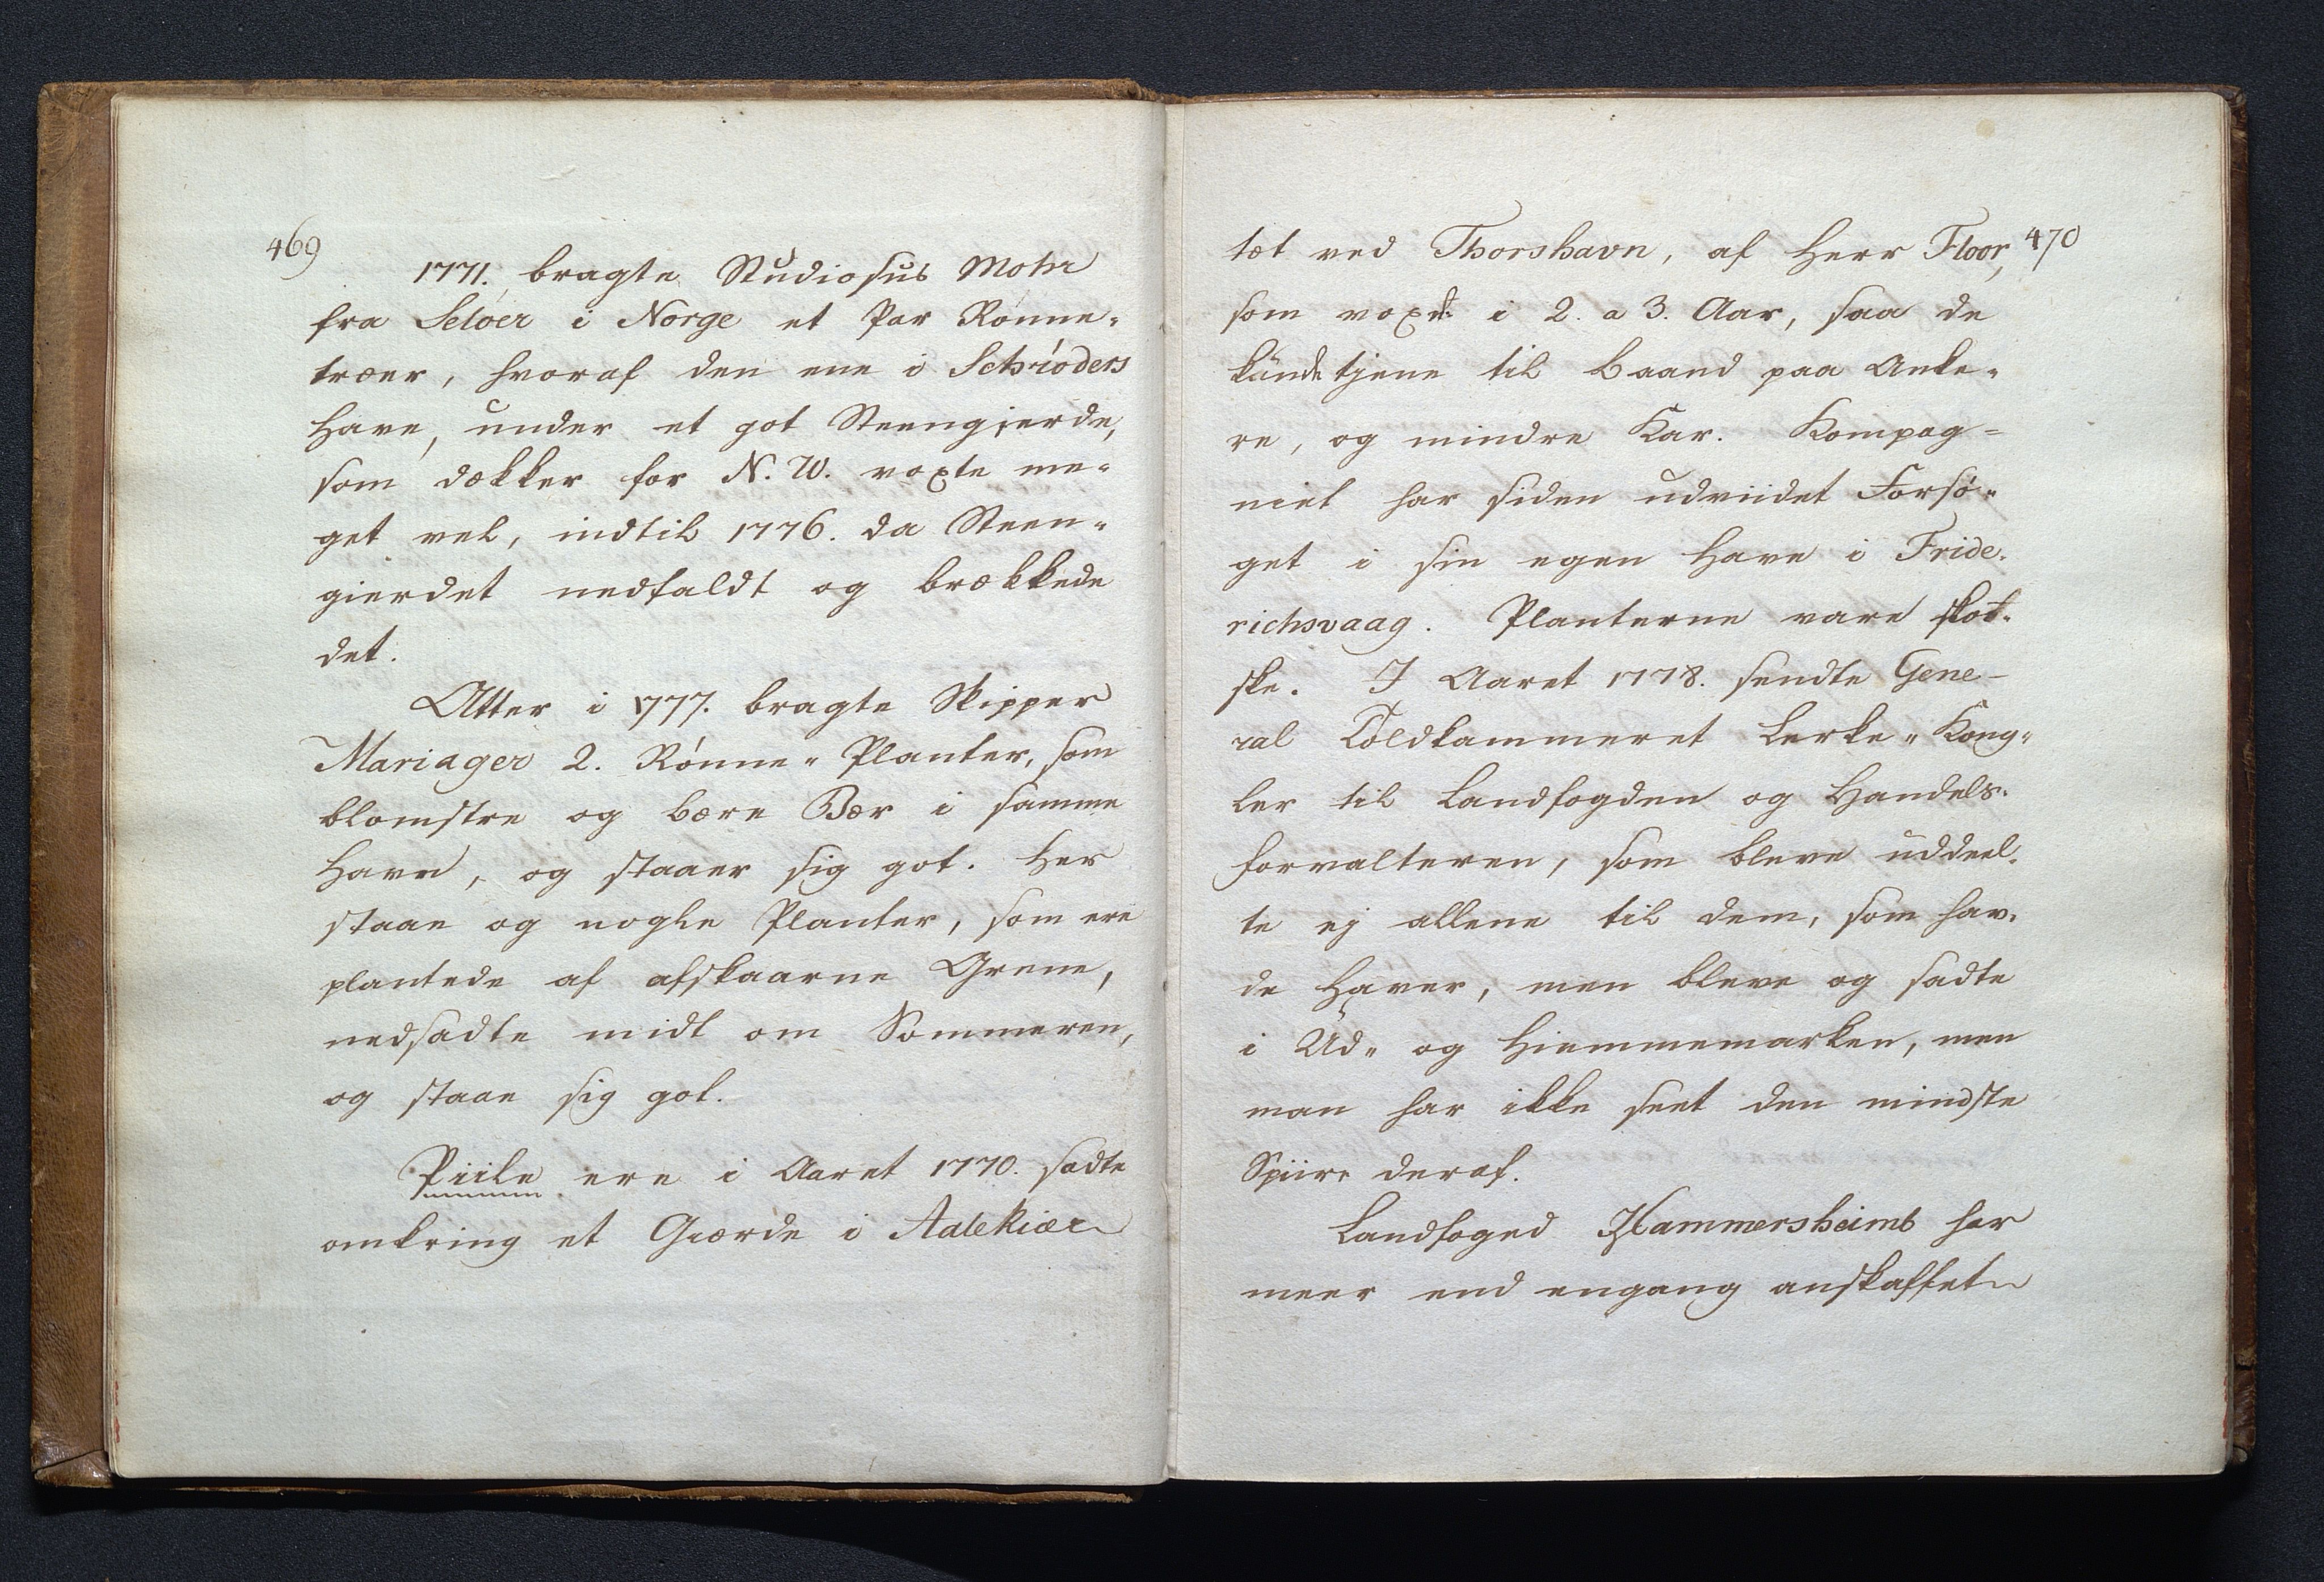 469
1771. bragte Studiosus Mohr
fra Seløer i Norge et Par Rønne-
træer, hvoraf den ene i Schrøders
Have, under et got Steengierde,
som dækker for N. W. voxte me-
get vel, indtil 1776. da Steen-
gierdet nedfaldt og brækkede
det.
Atter i 1777. bragte Skipper
Mariager 2. Rønne-Planter, som
blomstre og bære Bær i samme
Have, og staaer sig got. Her
staae og nogle Planter, som ere
plantede af afskaarne Grene,
nedsadte midt om Sommeren,
og staae sig got.
Piile ere i Aaret 1770. sadte
omkring et Gierde i Aalekiær
tæt ved Thorshavn, af Herr Floor, 470
som voxde i 2. a 3. Aar, saa de
kunde tjene til Baand paa Anke-
re, og mindre Kar. Kompag=
niet har siden udviidet Forsø-
get i sin egen Have i Fride-
richsvaag. Planterne vare skot-
ske. I Aaret 1778. sendte Gene-
ral Toldkammeret Lerke-Kong-
ler til Landfogden og Handels-
forvalteren, som bleve uddeel-
te ej allene til dem, som hav-
de Haver, men bleve og sadte
i Ud- og Hiemmemarken, men
man har ikke seet den mindste
Spiire deraf.
Landfoged Hammersheimb har
meer end engang anskaffet